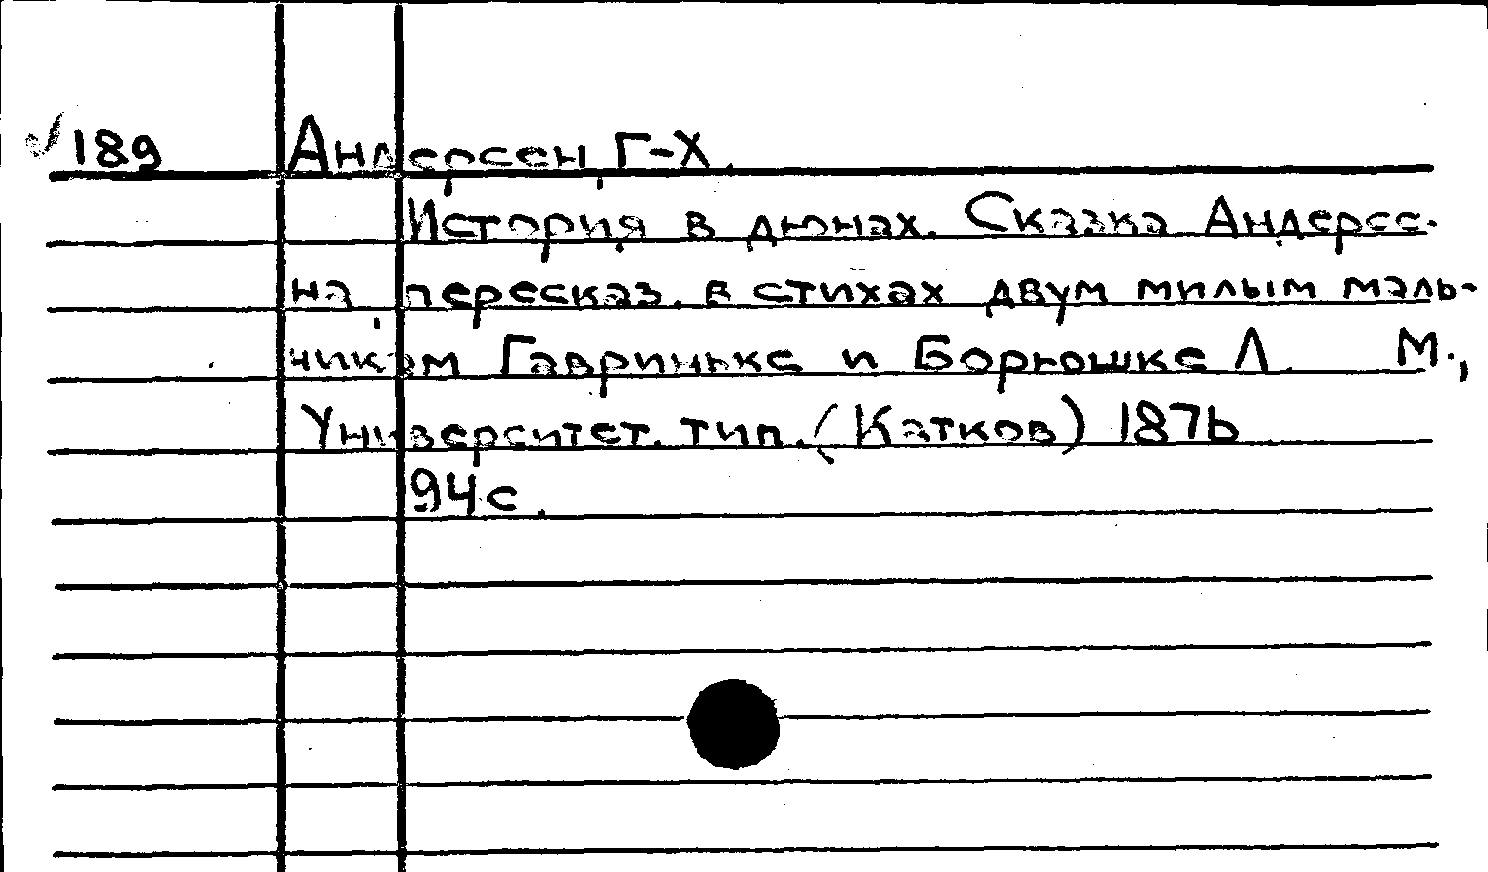 √189 Андерсен, Г-Х.
История в дюнах. Сказка Андерсе-
на, пересказ. в стихах двум милым маль-
чикам Гавриньке и Борюшке Л. М.,
Университет. тип. (Катков) 187b
94с.